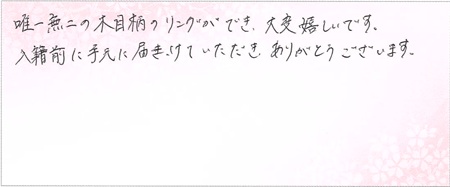 唯一無二の木目柄のリングができ、大変嬉しいです。
入籍前に手元に届きけていただき、ありがとうございます。